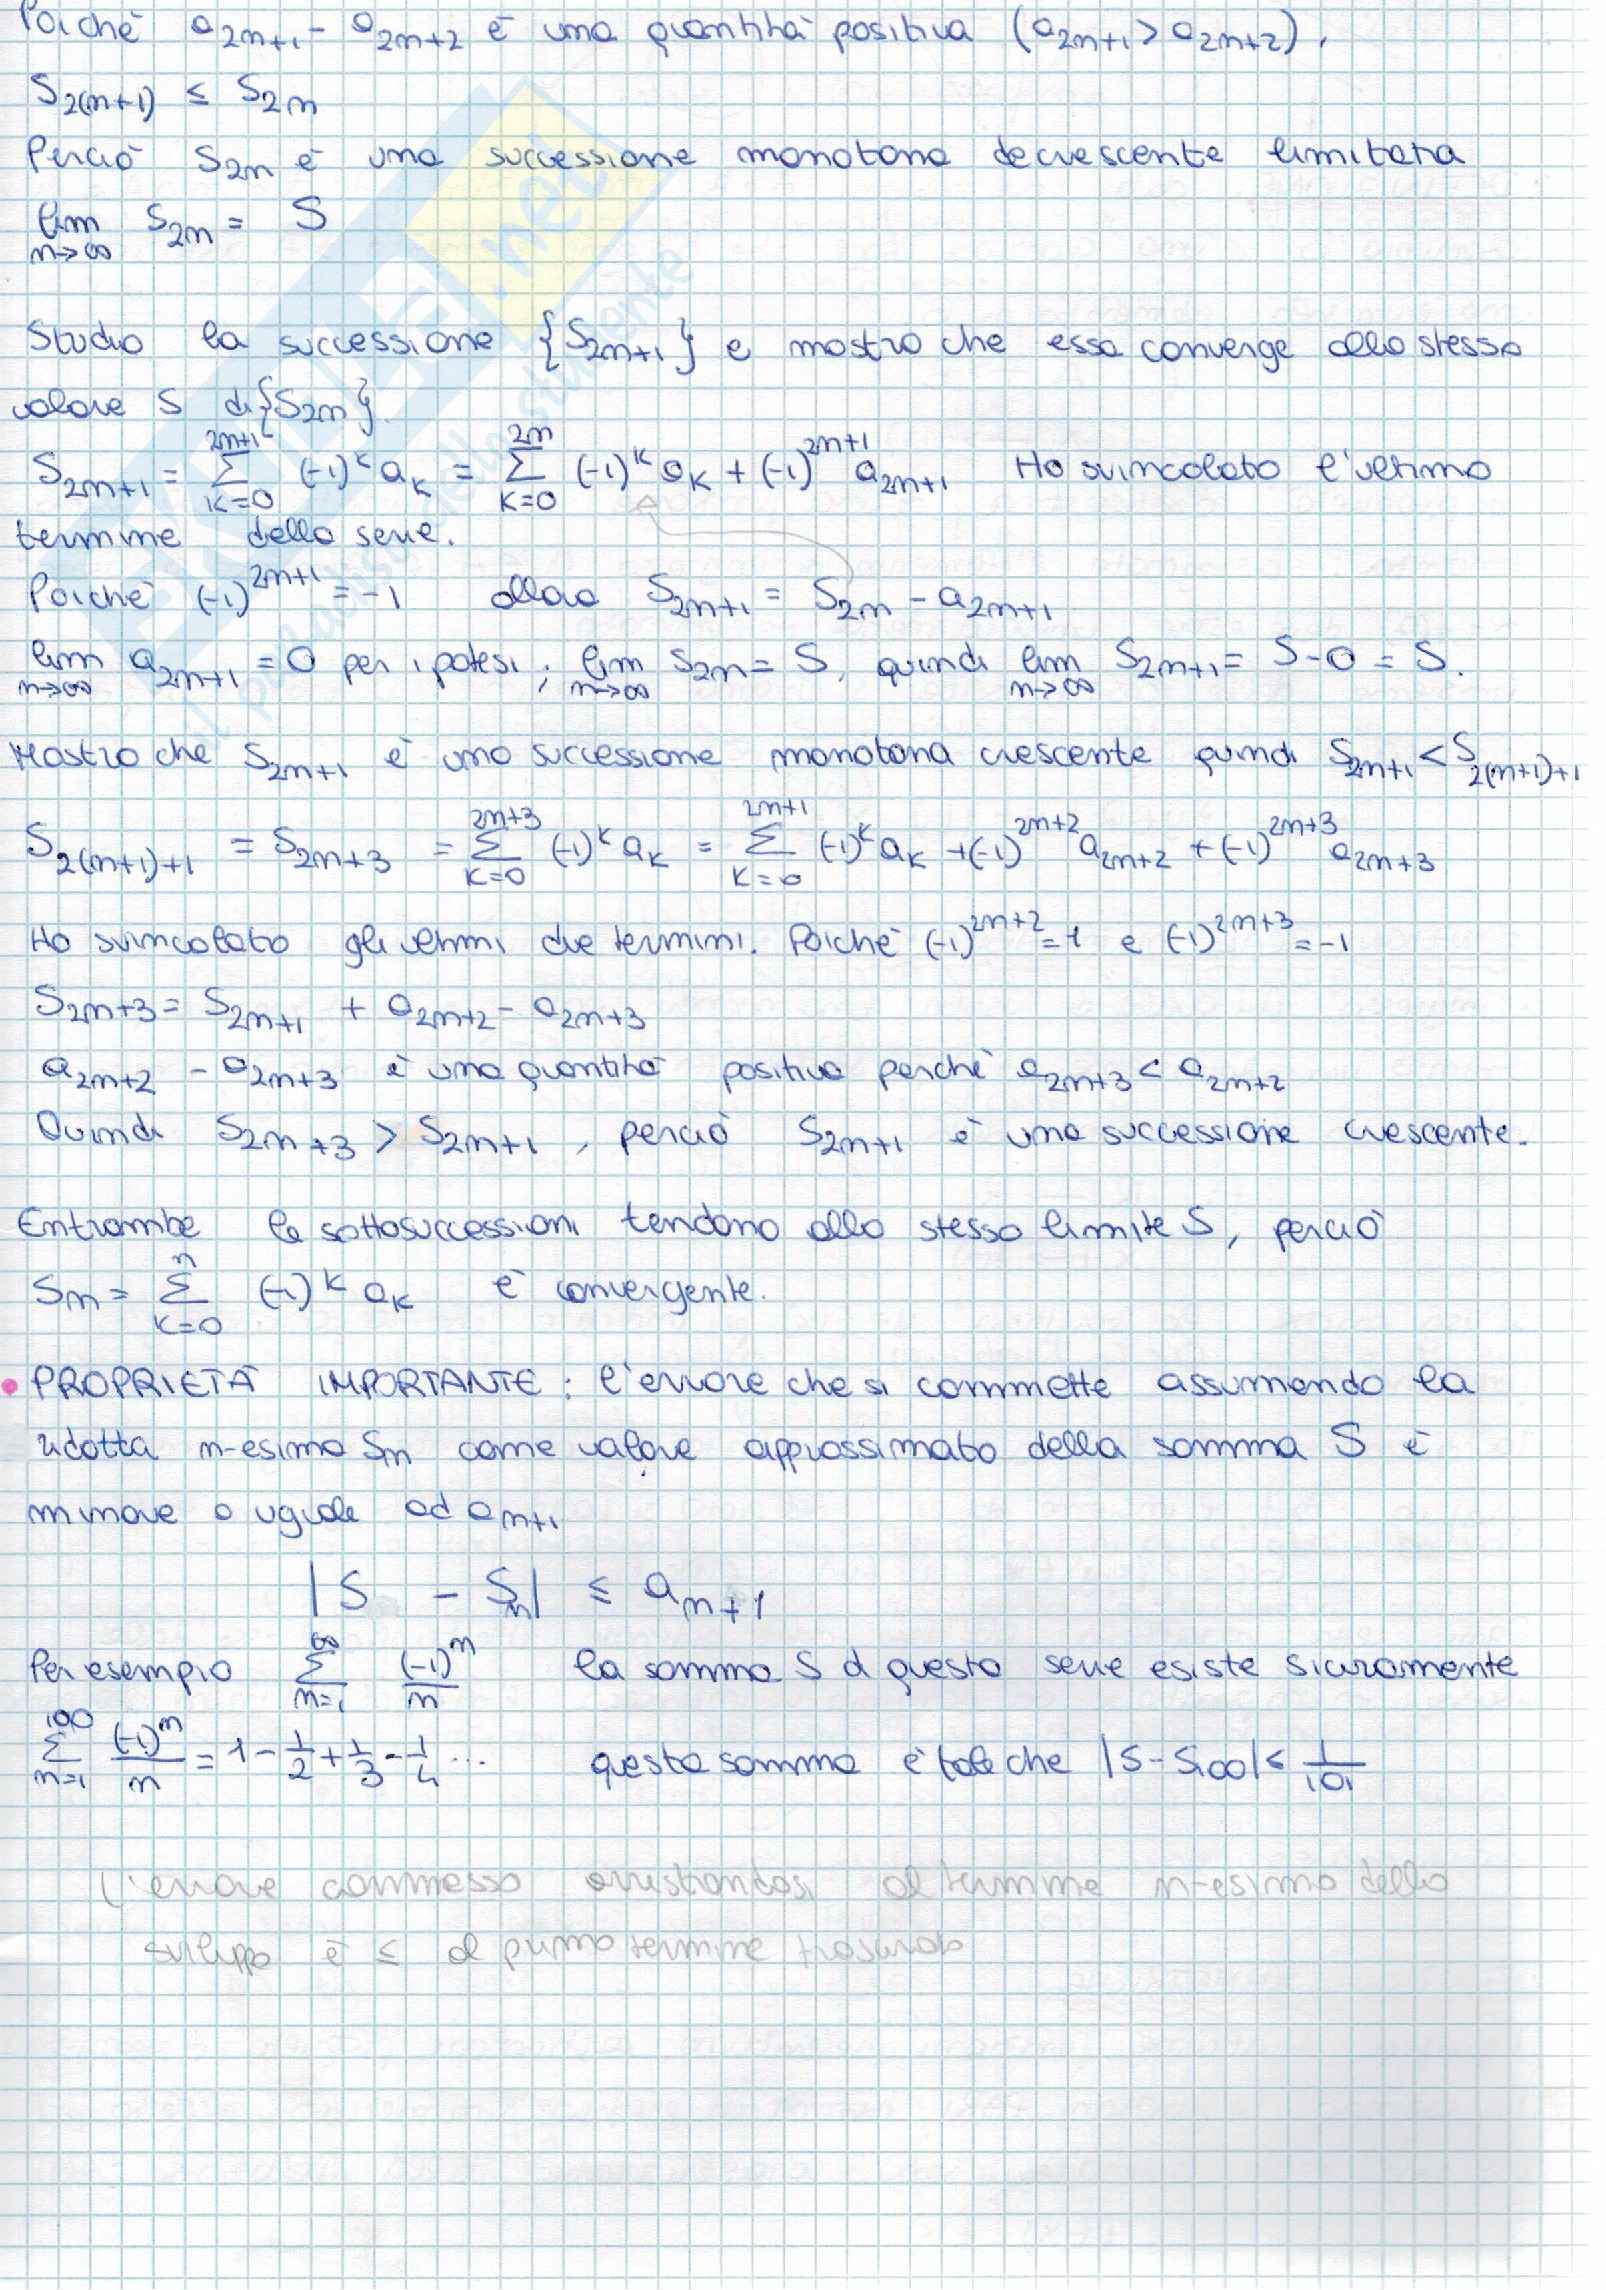 Poichè a_{2n+1} - a_{2n+2} è una quantità positiva (a_{2n+1} > a_{2n+2}),
S_{2(n+1)} ≤ S_{2n}
Perciò S_{2n} è una successione monotona decrescente limitata
lim_{n→∞} S_{2n} = S
Studio la successione {S_{2n+1}} e mostro che essa converge allo stesso
valore S di {S_{2n}}.
S_{2n+1} = Σ_{k=0}^{2n+1} (-1)^k a_k = Σ_{k=0}^{2n} (-1)^k a_k + (-1)^{2n+1} a_{2n+1} Ho svincolato l'ultimo
termine della serie.
Poichè (-1)^{2n+1} = -1 allora S_{2n+1} = S_{2n} - a_{2n+1}
lim_{n→∞} a_{2n+1} = 0 per ipotesi; lim_{n→∞} S_{2n} = S, quindi lim_{n→∞} S_{2n+1} = S - 0 = S.
Mostro che S_{2n+1} è una successione monotona crescente quindi S_{2n+1} < S_{2(n+1)+1}
S_{2(n+1)+1} = S_{2n+3} = Σ_{k=0}^{2n+3} (-1)^k a_k = Σ_{k=0}^{2n+1} (-1)^k a_k + (-1)^{2n+2} a_{2n+2} + (-1)^{2n+3} a_{2n+3}
Ho svincolato gli ultimi due termini. Poichè (-1)^{2n+2} = 1 e (-1)^{2n+3} = -1
S_{2n+3} = S_{2n+1} + a_{2n+2} - a_{2n+3}
a_{2n+2} - a_{2n+3} è una quantità positiva perchè a_{2n+3} < a_{2n+2}
Quindi S_{2n+3} > S_{2n+1}, perciò S_{2n+1} è una successione crescente.
Entrambe le sottosuccessioni tendono allo stesso limite S, perciò
S_n = Σ_{k=0}^{n} (-1)^k a_k è convergente.
• PROPRIETÀ IMPORTANTE: l'errore che si commette assumendo la
ridotta n-esima S_n come valore approssimato della somma S è
minore o uguale ad a_{n+1}
|S - S_n| ≤ a_{n+1}
Per esempio Σ_{n=1}^{∞} (-1)^n/n la somma S di questa serie esiste sicuramente
Σ_{n=1}^{100} (-1)^n/n = 1 - 1/2 + 1/3 - 1/4 ... questa somma è tale che |S - S_{100}| ≤ 1/101
L'errore commesso arrestandosi al termine n-esimo dello
sviluppo è ≤ al primo termine trascurato